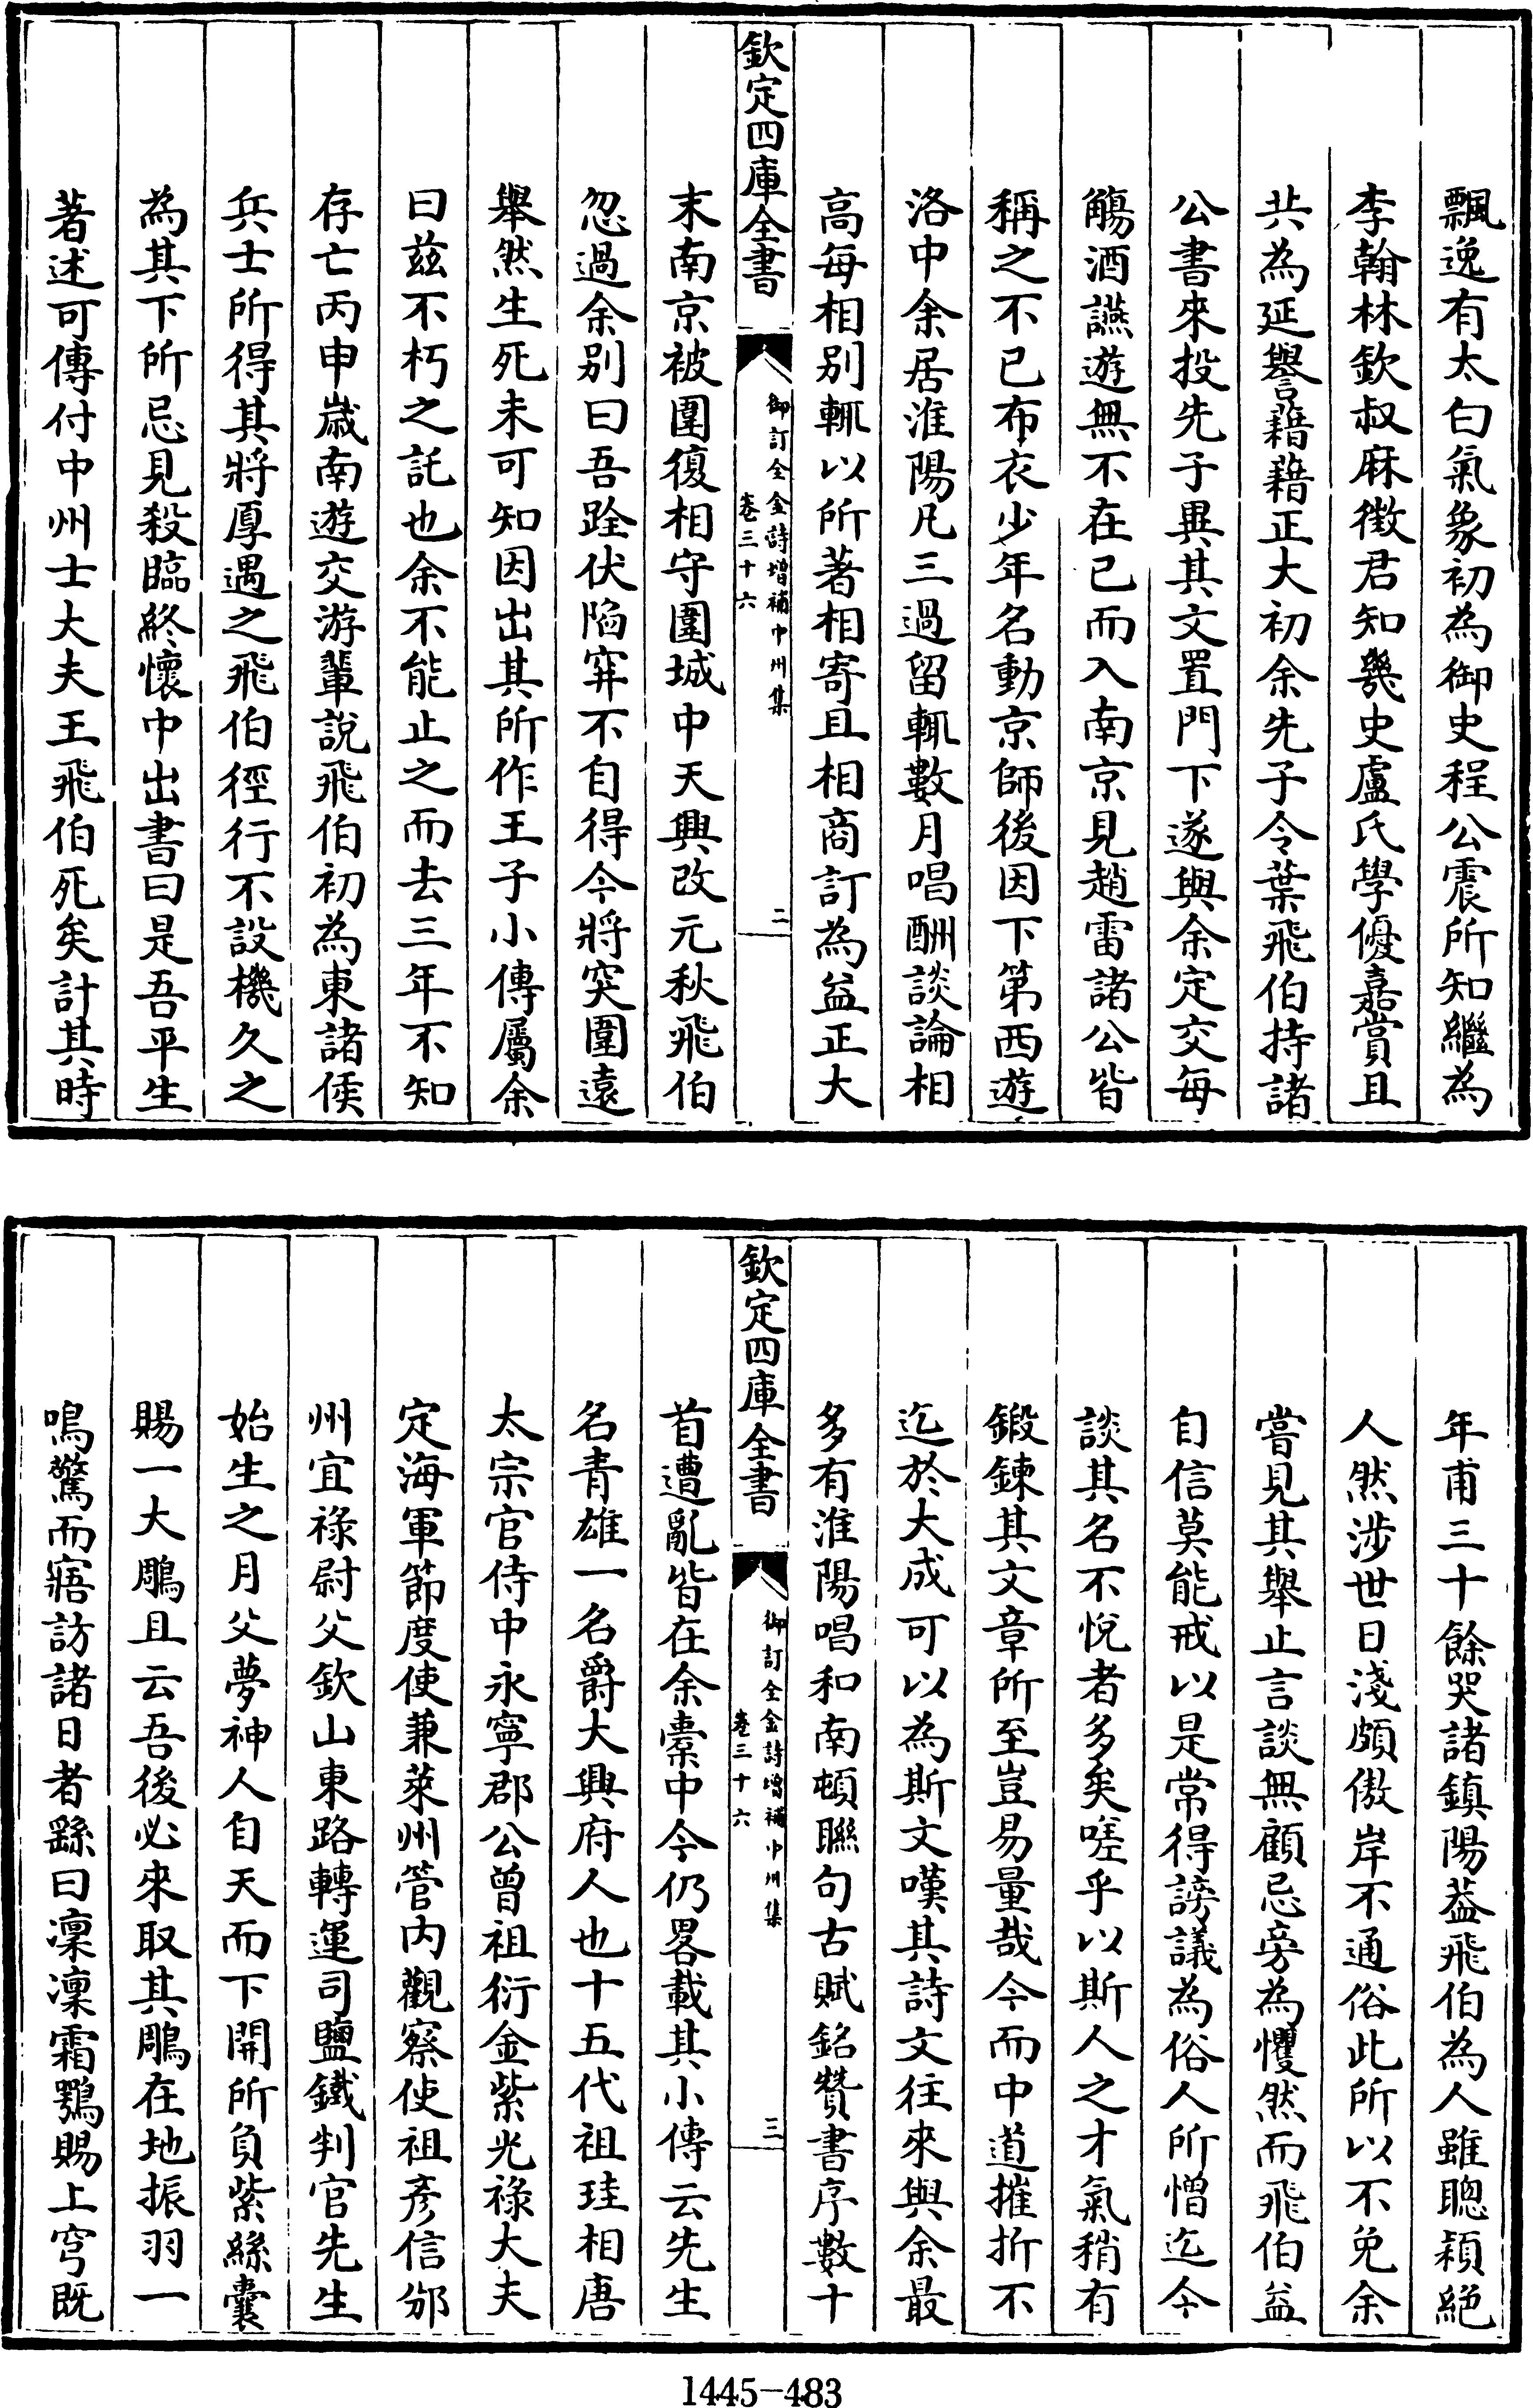 飄逸有太白氣象初為御史程公震所知繼為
李翰林欽叔麻徵君知幾史盧氏學優嘉賞且
共為延譽藉藉正大初余先子令葉飛伯持諸
公書來投先子異其文置門下遂與余定交每
觴酒讌遊無不在已而入南京見趙雷諸公皆
稱之不已布衣少年名動京師後因下第西遊
洛中余居淮陽凡三過留輒數月唱酬談論相
高每相别輒以所著相寄且相商訂為益正大
欽定四庫全書
御訂全金詩增補中州集
卷三十六
二
末南京被圍復相守圍城中天興改元秋飛伯
忽過余别曰吾跧伏陷穽不自得今將突圍遠
舉然生死未可知因出其所作王子小傳屬余
曰兹不朽之託也余不能止之而去三年不知
存亡丙申歲南遊交游輩說飛伯初為東諸侯
兵士所得其將厚遇之飛伯徑行不設機久之
為其下所忌見殺臨終懷中出書曰是吾平生
著述可傳付中州士大夫王飛伯死矣計其時
年甫三十餘哭諸鎮陽葢飛伯為人雖聰穎絕
人然涉世日淺頗傲岸不通俗此所以不免余
嘗見其舉止言談無顧忌旁為懼然而飛伯益
自信莫能戒以是常得謗議為俗人所憎迄今
談其名不悅者多矣嗟乎以斯人之才氣稍有
鍛鍊其文章所至豈易量哉今而中道摧折不
迄於大成可以為斯文嘆其詩文往來與余最
多有淮陽唱和南頓聯句古賦銘贊書序數十
欽定四庫全書
御訂全金詩增補中州集
卷三十六
三
首遭亂皆在余槖中今仍畧載其小傳云先生
名青雄一名爵大興府人也十五代祖珪相唐
太宗官侍中永寧郡公曾祖衍金紫光祿大夫
定海軍節度使兼萊州管内觀察使祖彥信邠
州宜祿尉父欽山東路轉運司鹽鐵判官先生
始生之月父夢神人自天而下開所負紫絲囊
賜一大鵰且云吾後必來取其鵰在地振羽一
鳴驚而寤訪諸日者繇曰凜凜霜鶚賜上穹既
1445-483